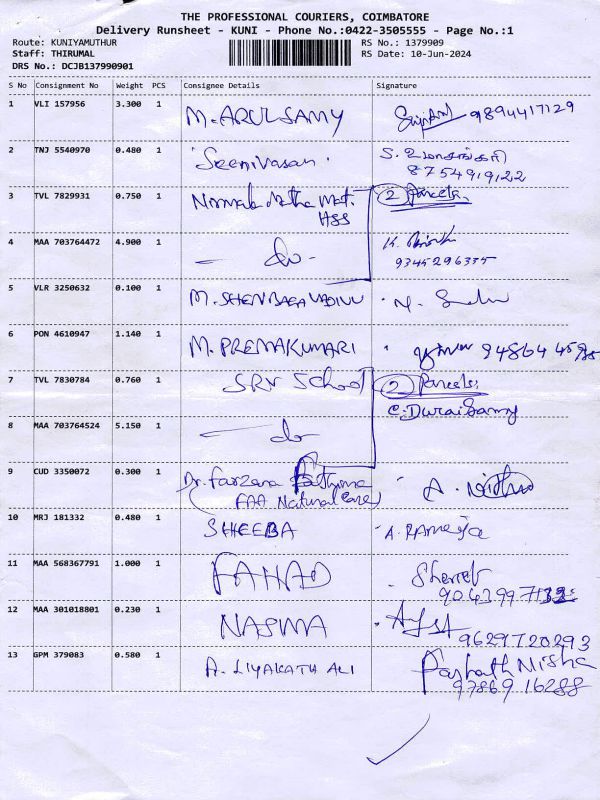 THE PROFESSIONAL COURIERS, COIMBATORE
Delivery Runsheet - KUNI - Phone No.:0422-3505555 - Page No.:1
Route: KUNIYAMUTHUR
RS No.: 1379909
Staff: THIRUMAL
RS Date: 10-Jun-2024
DRS No.: DCJB137990901
S No Consignment No Weight PCS Consignee Details Signature
1 VLI 157956 3.300 1 M. ARULSAMY 9894417129
2 TNJ 5540970 0.480 1 Seenivasan.
8754919122
3 TVL 7829931 0.750 1 Nirmala Matha Mat. 2 Parcels.
HSS
4 MAA 703764472 4.900 1 - do - K.
9345296335
5 VLR 3250632 0.100 1 M. SHENBAGAVADIVU
6 PON 4610947 1.140 1 M. PREMAKUMARI
7 TVL 7830784 0.760 1 SRV School 2 Parcels
C. Durai Samy
8 MAA 703764524 5.150 1 - do
9 CUD 3350072 0.300 1 Dr. Farzana Fathima
(FAA Natural Care)
10 MRJ 181332 0.480 1 SHEEBA A. RAMEEJA
11 MAA 568367791 1.000 1 FAHAD
12 MAA 301018801 0.230 1 NASIMA
9629720293
13 GPM 379083 0.580 1 A. LIYAKATH ALI Parhath Nisha
97869 16288